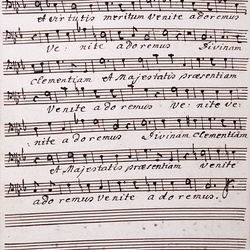 et virtutis meritum Venite adoremus
Ve: nite adoremus Divinam
clementiam et Majestatis præsentiam
Venite adoremus Ve: nite ve:
nite adoremus Divinam Clementiam
et Majestatis præsentiam venite
adoremus Venite adoremus.